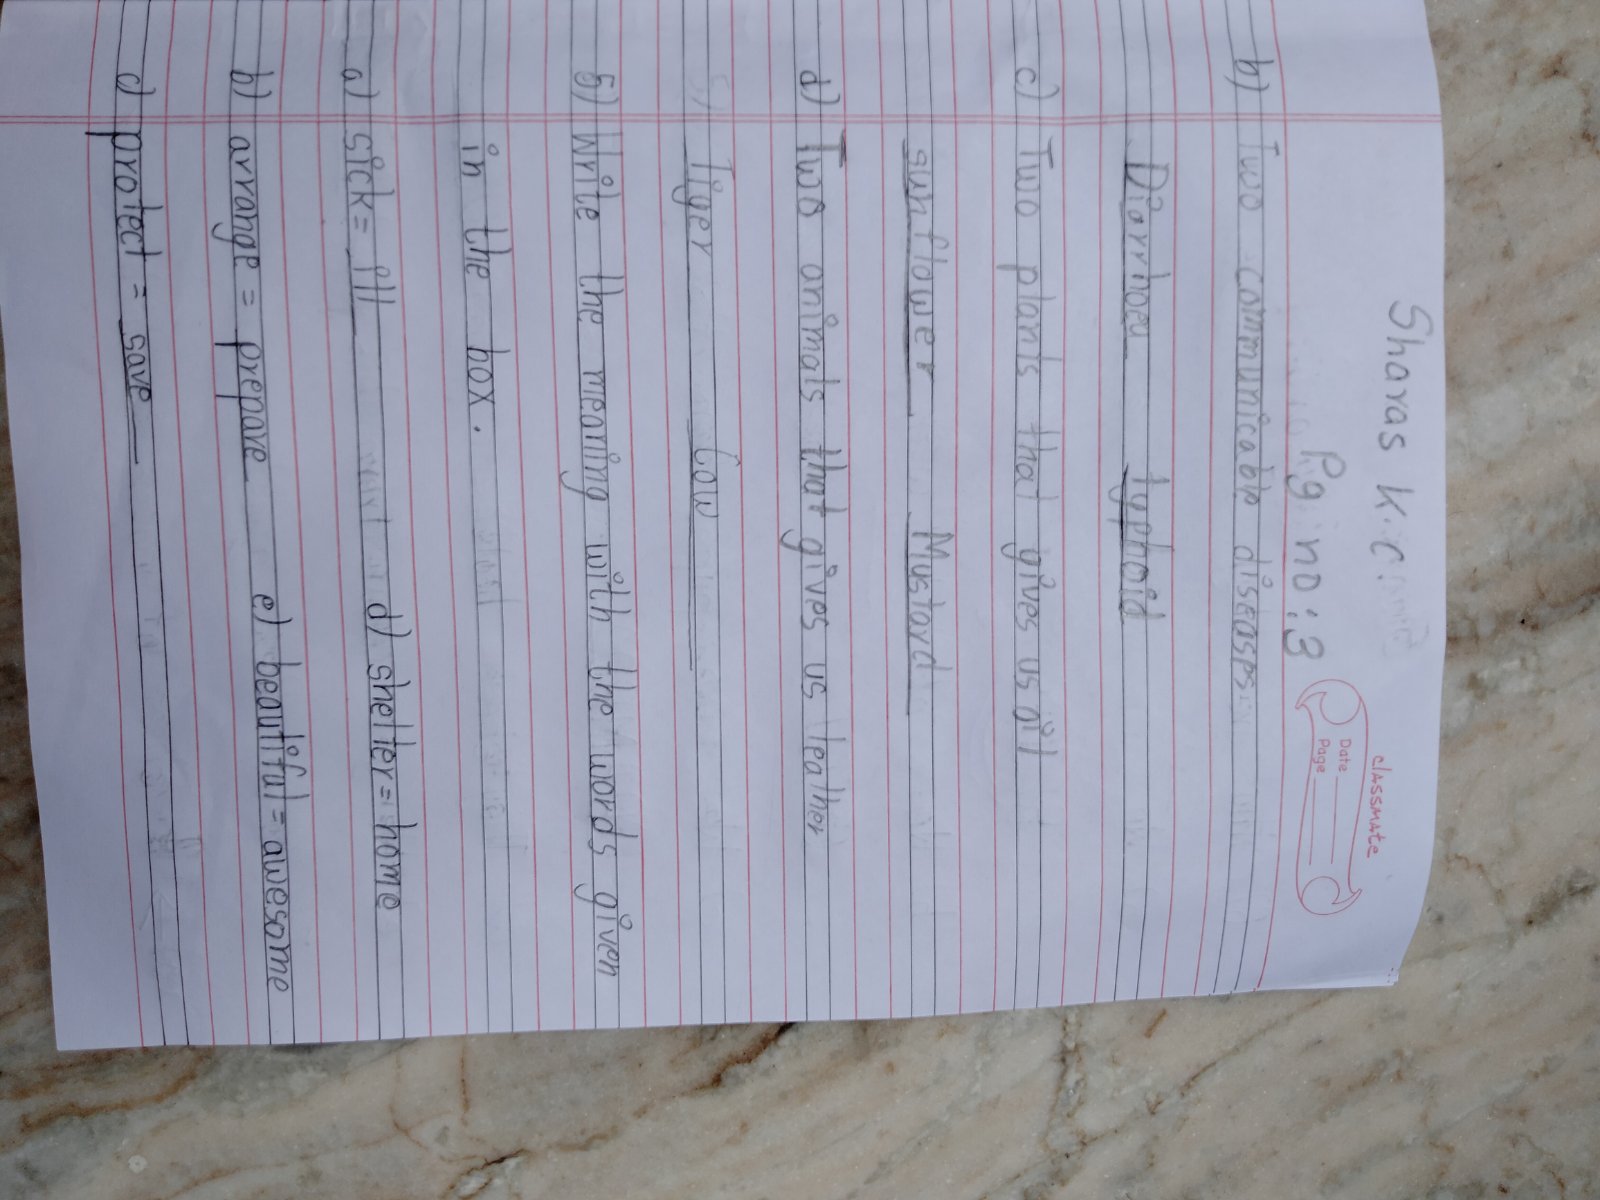 Sharas K.C.
Pg no: 3
classmate
Date
Page
b) Two communicable diseases.
Diarrhoea typhoid
c) Two plants that gives us oil
sunflower Mustard
d) Two animals that gives us leather
Tiger Cow
5) Write the meaning with the words given
in the box.
a) sick = ill d) shelter = home
b) arrange = prepare e) beautiful = awesome
c) protect = save